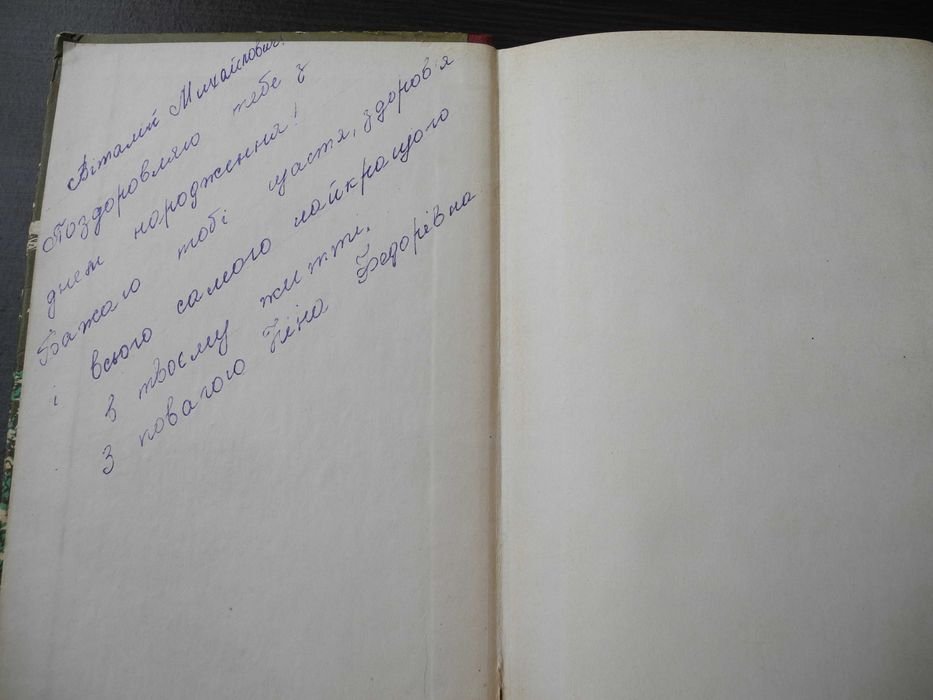 Віталій Михайлович!
Поздоровляю тебе з
днем народження!
Бажаю тобі щастя, здоров'я
і всього самого найкращого
в твоєму житті.
З повагою Ніна Федорівна